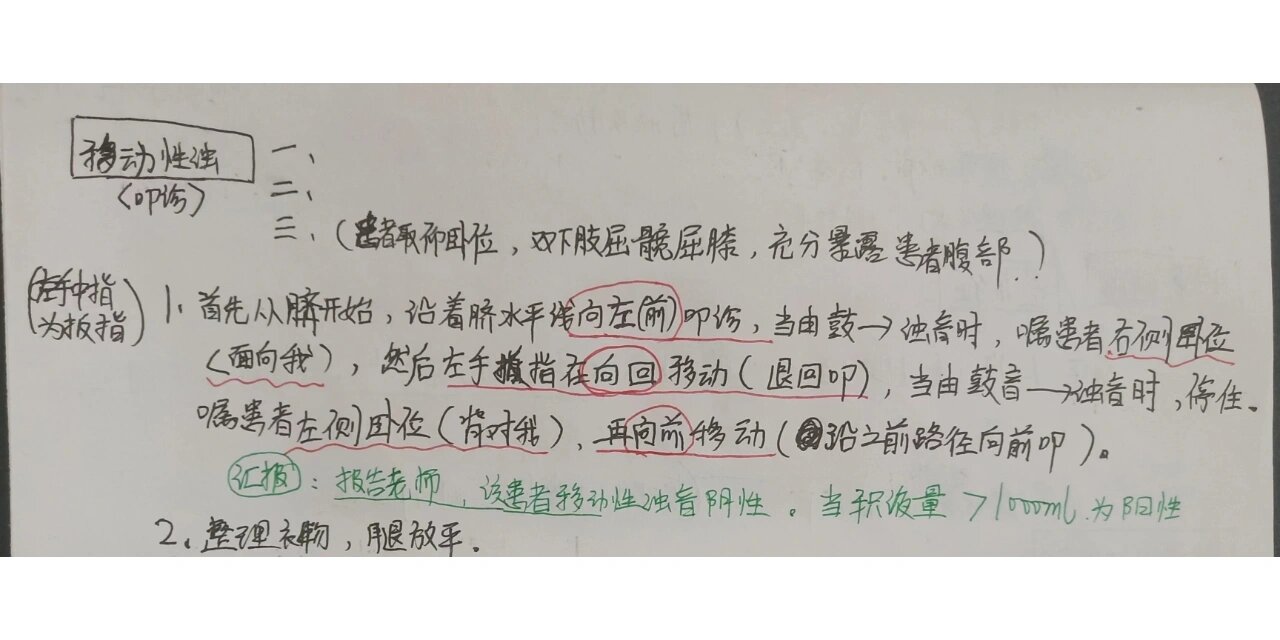 移动性浊
(叩诊)
一、
二、
三、(患者取仰卧位，双下肢屈髋屈膝，充分暴露患者腹部.)
(左手中指为扳指)
1、首先从脐开始，沿着脐水平线向左(前)叩诊，当由鼓→浊音时，嘱患者右侧卧位
(面向我)，然后左手扳指在向回移动(退回叩)，当由鼓音→浊音时，停住。
嘱患者左侧卧位(背对我)，再向前移动(沿之前路径向前叩)。
汇报：报告老师，该患者移动性浊音阴性。当积液量>1000ml.为阳性
2、整理衣物，腿放平.